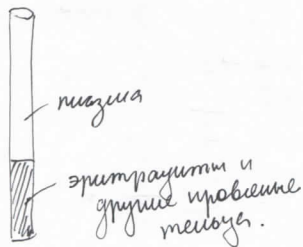 плазма
эритроциты и
другие кровяные
тельца.